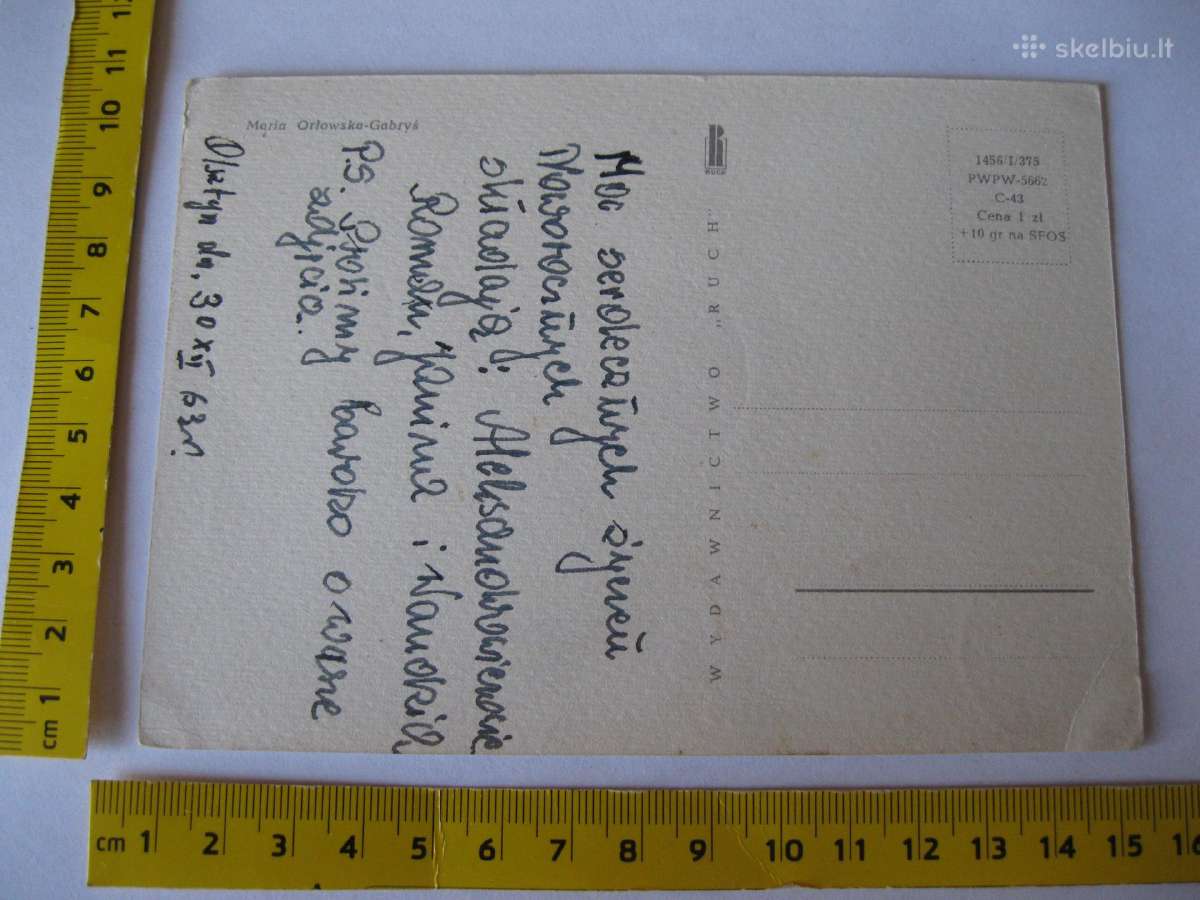 skelbiu.lt
Maria Orłowska-Gabryś
RUCH
WYDAWNICTWO „RUCH”
1456/I/375
PWPW-5662
C-43
Cena 1 zł
+10 gr na SFOS
Moc serdecznych życzeń
Noworocznych
składają: Aleksandrowiczowie
Romek, Janina i
P.S. Prosimy bardzo o wasze
zdjęcia.
Olsztyn dn. 30 XII 63r.
cm 1 2 3 4 5 6 7 8 9 10 11 12
cm 1 2 3 4 5 6 7 8 9 10 11 12 13 14 15 16